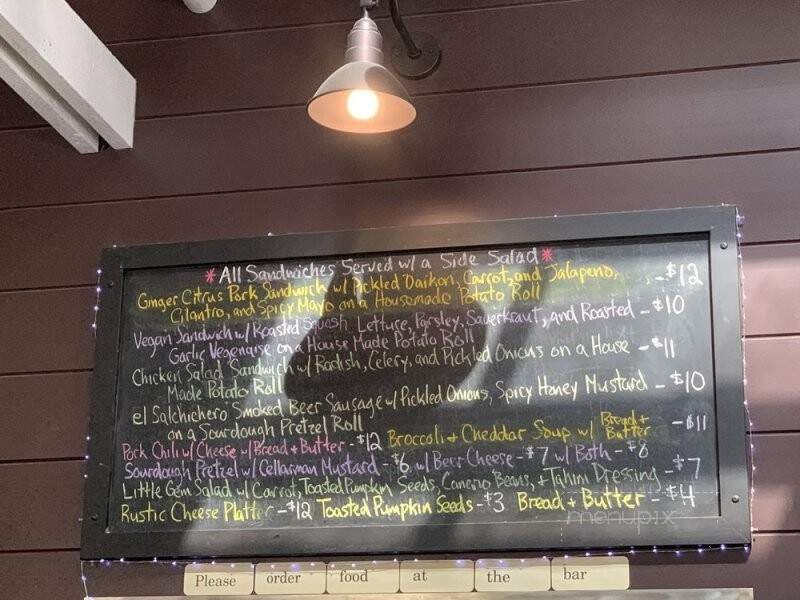 *All Sandwiches Served w/ a Side Salad*
Ginger Citrus Pork Sandwich w/ Pickled Daikon, Carrot, and Jalapeno, - $12
Cilantro, and Spicy Mayo on a Housemade Potato Roll
Vegan Sandwich w/ Roasted Squash Lettuce, Parsley, Sauerkraut, and Roasted - $10
Garlic Vegenaise on a House Made Potato Roll
Chicken Salad Sandwich w/ Radish, Celery, and Pickled Onions on a House - $11
Made Potato Roll
el Salchichero Smoked Beer Sausage w/ Pickled Onions, Spicy Honey Mustard - $10
on a Sourdough Pretzel Roll
Pork Chili w/ Cheese w/ Bread + Butter - $12 Broccoli + Cheddar Soup w/ Bread + Butter - $11
Sourdough Pretzel w/ Cellarman Mustard - $6 w/ Beer Cheese - $7 w/ Both - $8
Little Gem Salad w/ Carrot, Toasted Pumpkin Seeds, Canario Beans, + Tahini Dressing - $7
Rustic Cheese Platter - $12 Toasted Pumpkin Seeds - $3 Bread + Butter - $4
menupix
Please order food at the bar